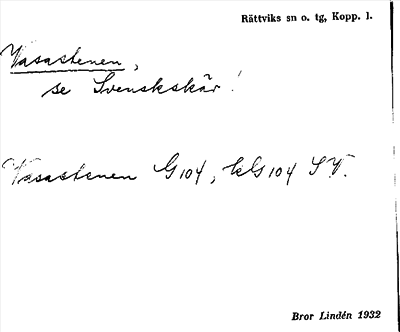 Rättviks sn o. tg, Kopp. l.
Vasastenen,
se Svenskskär!
Vasastenen G104, kG104 SV.
Bror Lindén 1932